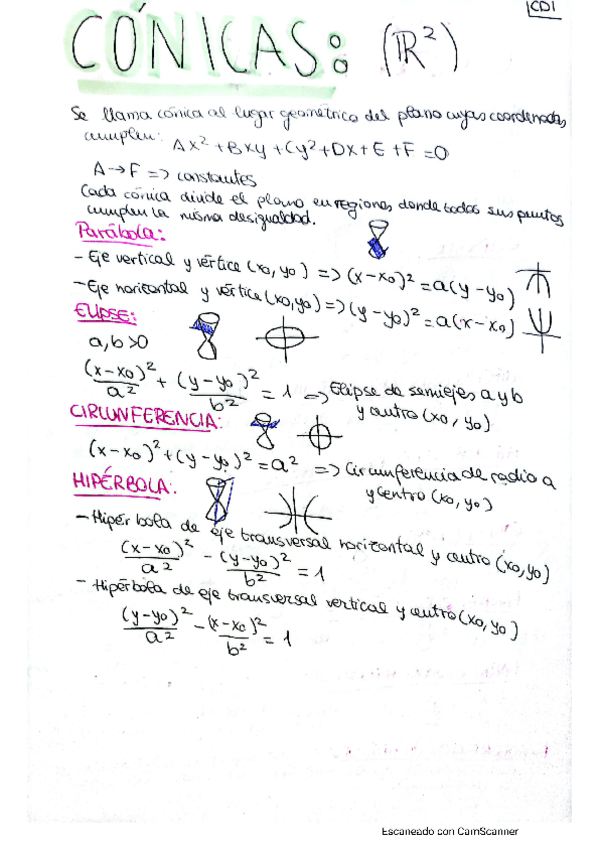 CDI
CÓNICAS: (ℝ²)
Se llama cónica al lugar geométrico del plano cuyas coordenadas
cumplen: Ax² + Bxy + Cy² + Dx + E + F = 0
A → F => constantes
Cada cónica divide el plano en regiones donde todos sus puntos
cumplen la misma desigualdad.
Parábola:
- Eje vertical y vértice (x₀, y₀) => (x-x₀)² = a(y-y₀)
- Eje horizontal y vértice (x₀, y₀) => (y-y₀)² = a(x-x₀)
ELIPSE:
a, b > 0
(x-x₀)²/a² + (y-y₀)²/b² = 1 => Elipse de semiejes a y b
y centro (x₀, y₀)
CIRCUNFERENCIA:
(x-x₀)² + (y-y₀)² = a² => Circunferencia de radio a
y centro (x₀, y₀)
HIPÉRBOLA:
- Hipérbola de eje transversal horizontal y centro (x₀, y₀)
(x-x₀)²/a² - (y-y₀)²/b² = 1
- Hipérbola de eje transversal vertical y centro (x₀, y₀)
(y-y₀)²/a² - (x-x₀)²/b² = 1
Escaneado con CamScanner